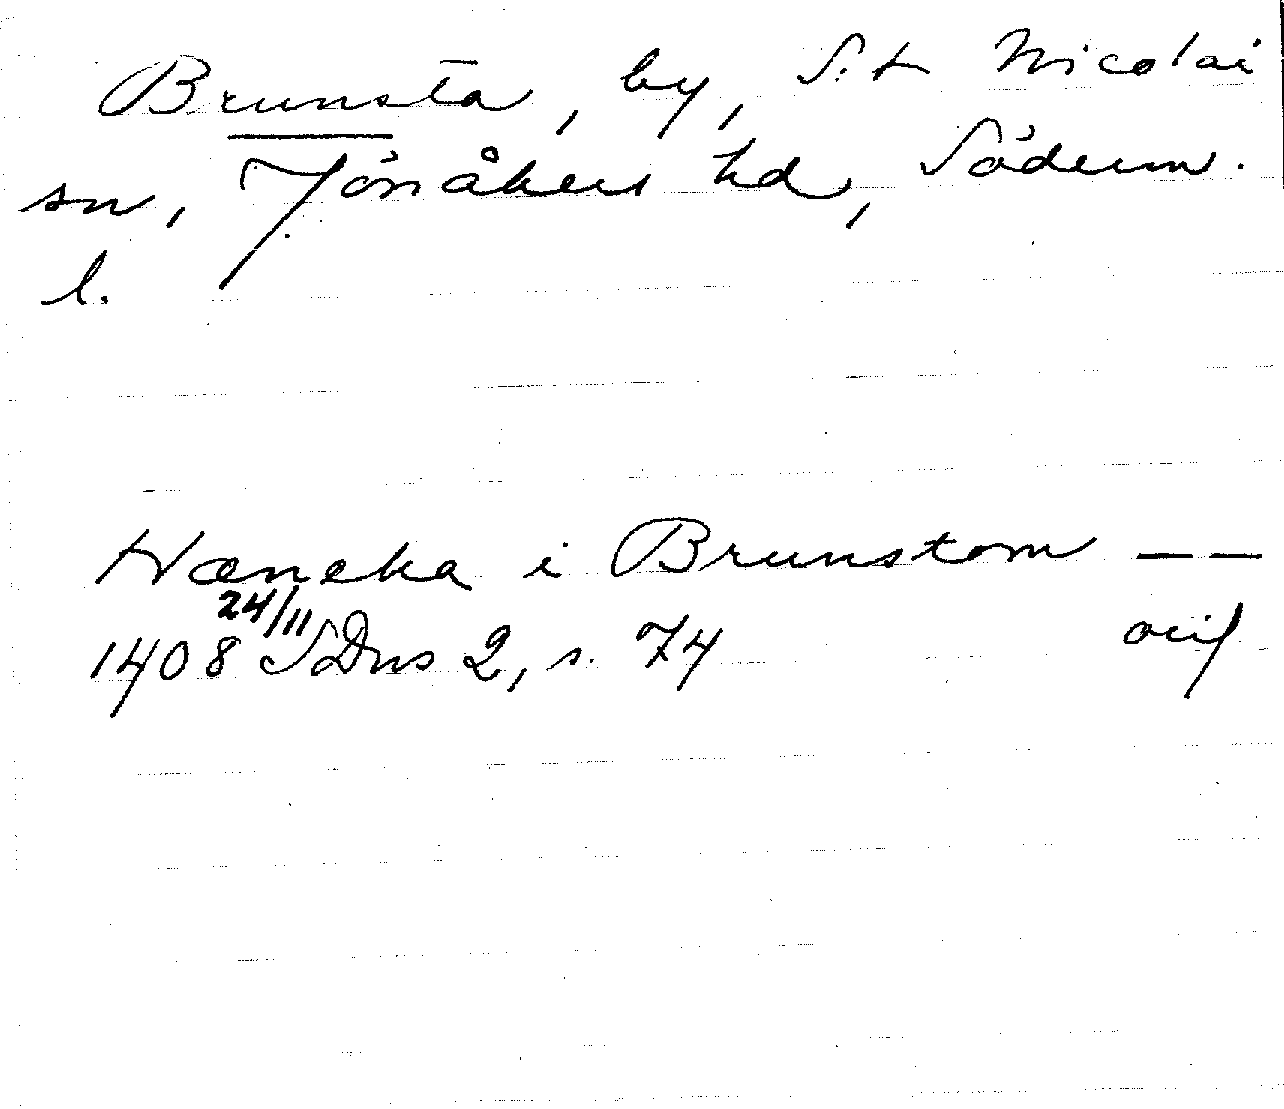 Brunsta, by, S:t Nicolai
sn, Jönåkers hd, Söderm.
l.
Haneka i Brunstom — —
1408 24/11 SDns 2, s. 74 orig